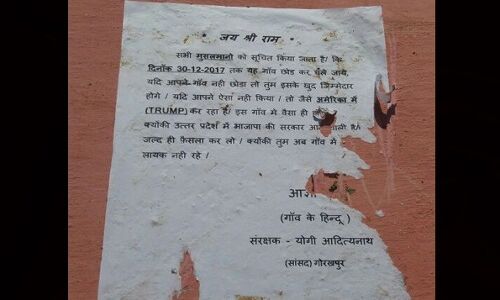 जय श्री राम
सभी मुसलमानो को सूचित किया जाता है/ कि
दिनाँक 30-12-2017 तक यह गाँव छोड कर चले जाये,
यदि आपने गाँव नही छोडा तो तुम इसके खुद जिम्मेदार
होगे / यदि आपने ऐसा नही किया / तो जैसे अमेरिका में
(TRUMP) कर रहा है/ इस गॉव में वैसा ही
क्योंकी उत्तर प्रदेश में भाजपा की सरकार है/
जल्द ही फ़ैसला कर लो / क्योंकी तुम अब गॉव में
लायक नही रहे /
(गाँव के हिन्दू )
संरक्षक - योगी आदित्यनाथ
(सांसद) गोरखपुर